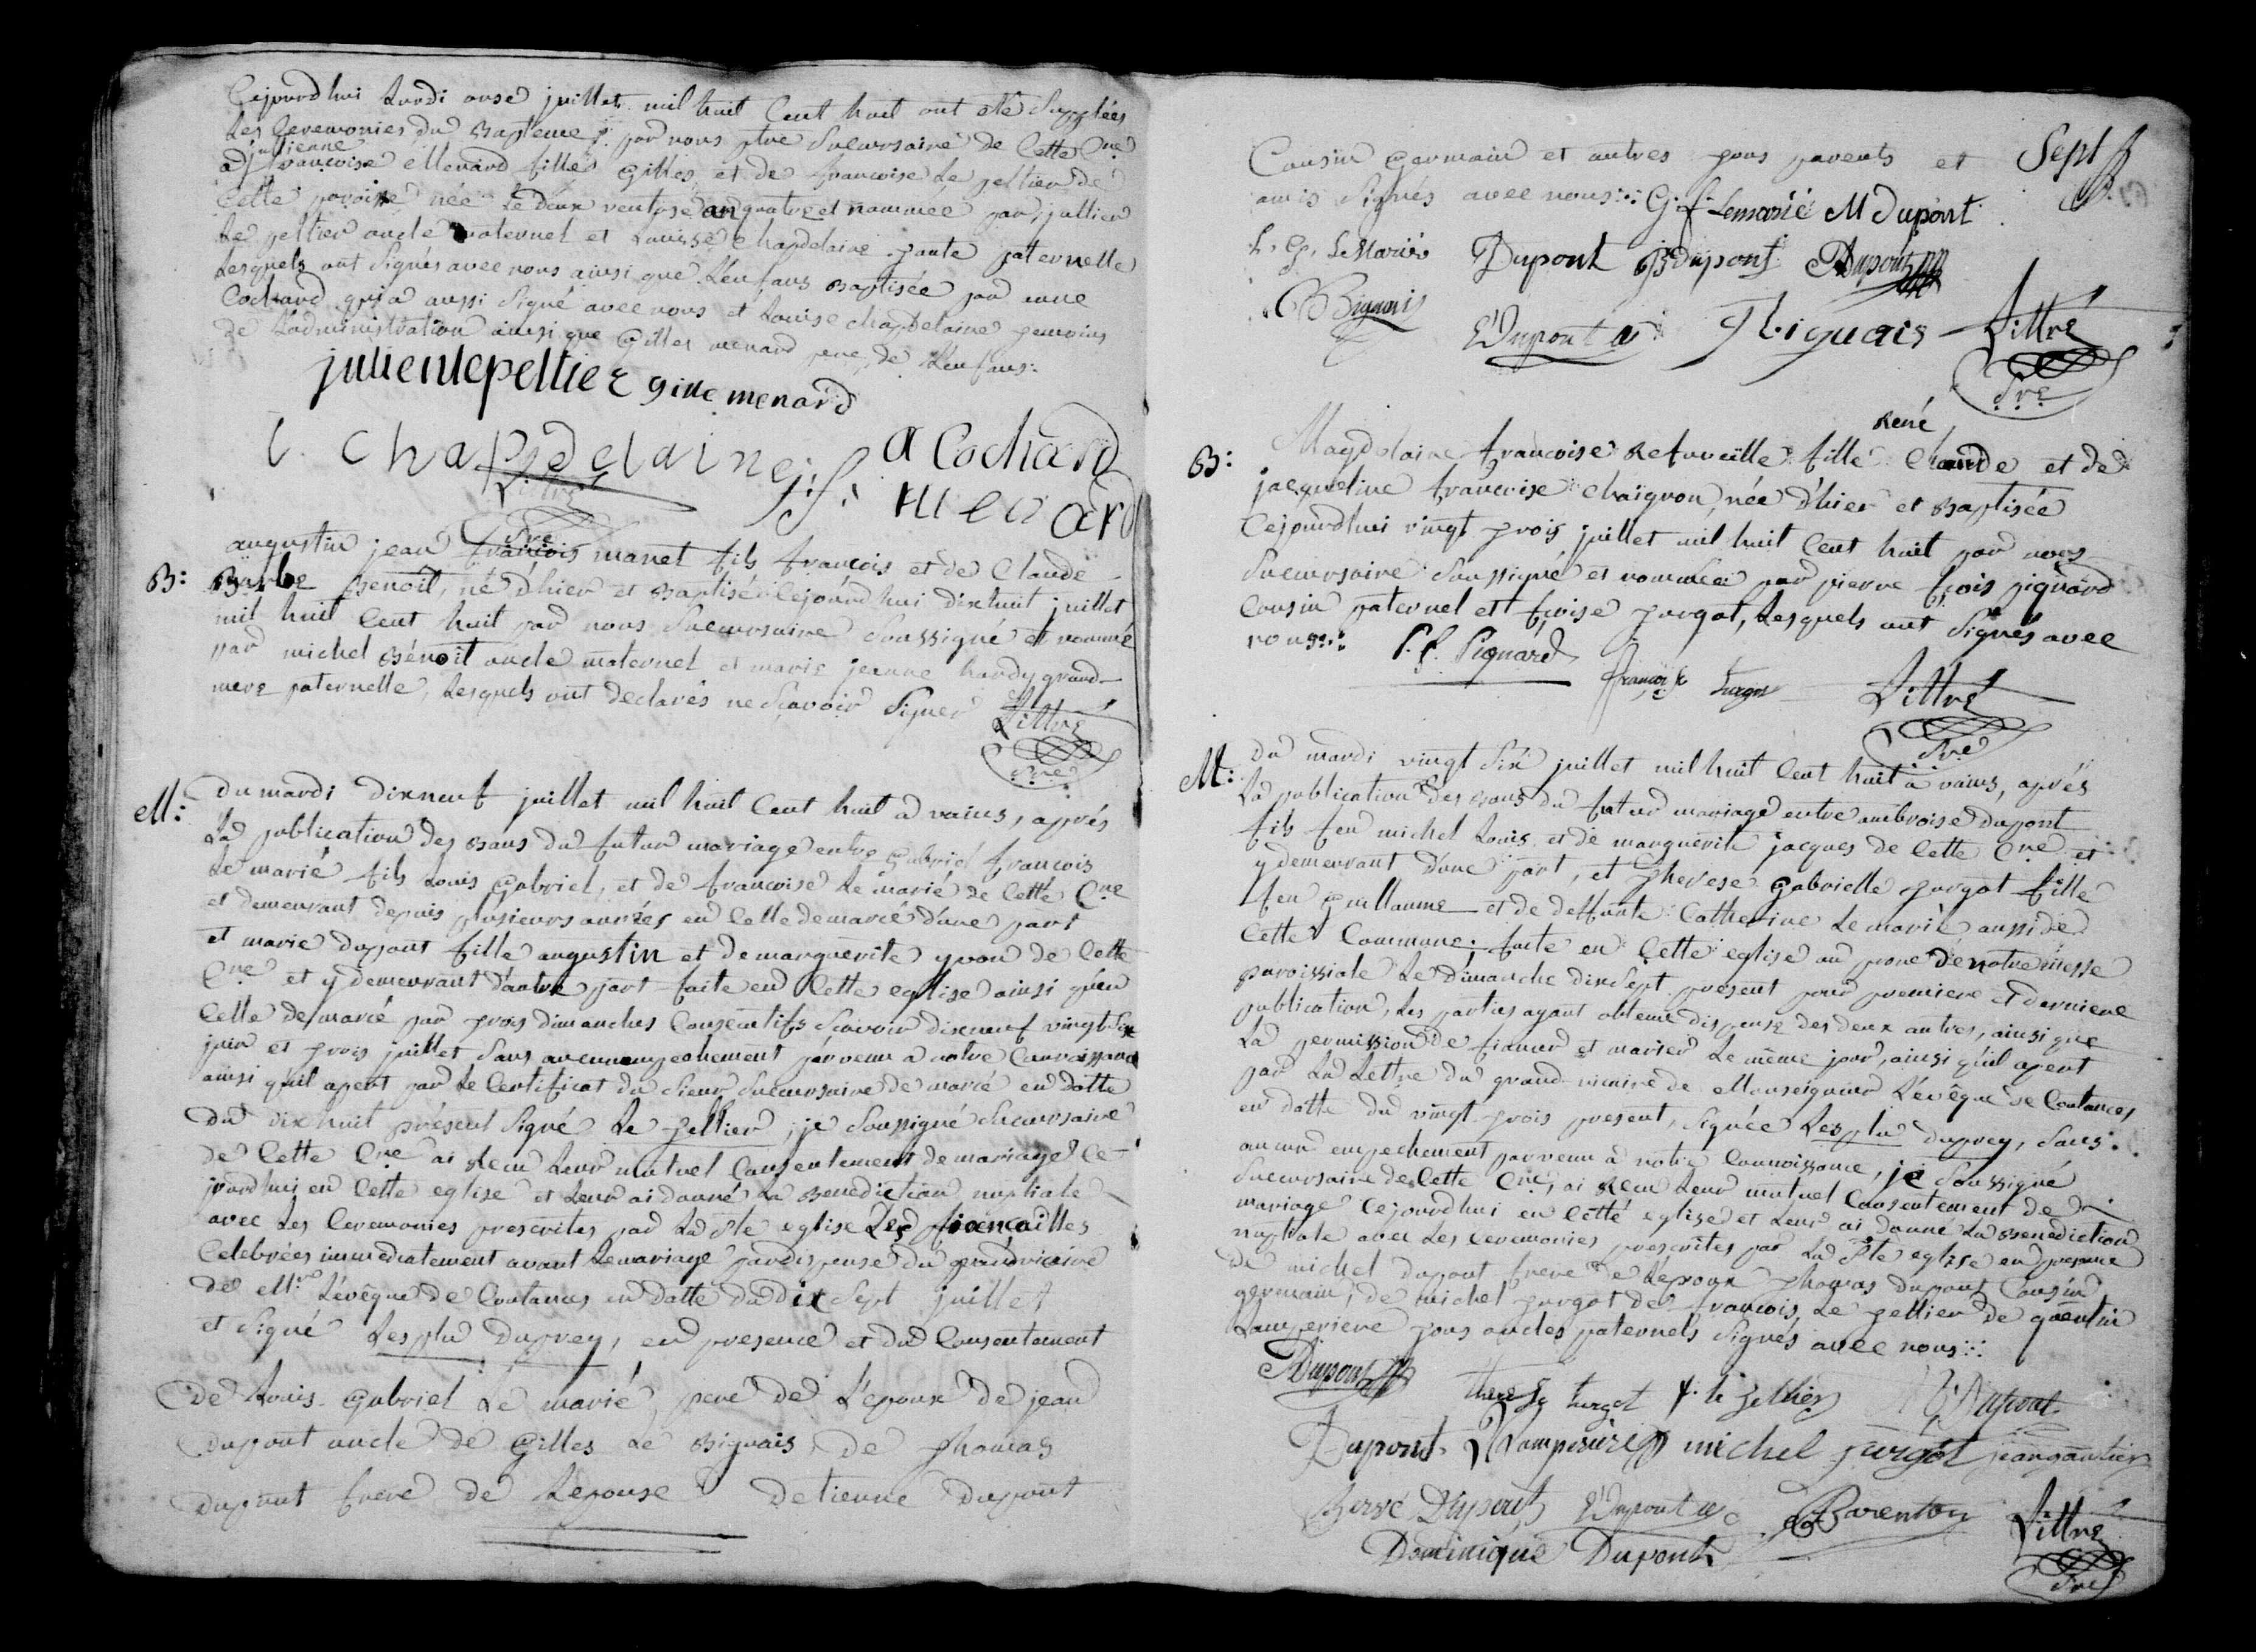 Cejourdhui Lundi onse juillet mil huit Cent huit ont été Supplées
Les Ceremonies du Bapteme par nous ptre Sucursaire de Cette Cne
julienne
a francoise Menard fille Gilles et de francoise Le peltier de
Cette paroisse née Le deux ventose an quatre et nommée par jullien
Le peltier oncle maternel et Louisse Chapdelaine tante paternelle
Lesquels ont Signés avec nous ainsi que L'enfans Baptisée par
Cochard qui a aussi Signé avec nous et Louise chapdelaine temoins
de L'administration ainsi que Gilles menard pere de L'enfans:
julien lepeltier gille menard
l. Chapdelaine j.f. a Cochard
Littré menard
Sre
augustin jean francois manet fils francois et de Claude
B: Barbe Benoit, né d'hier et Baptisé Cejourdhui dixhuit juillet
mil huit Cent huit par nous Sucursaire Soussigné et nommé
par michel Bénoit oncle maternel et marie jeanne hardy grand
mere paternelle, Lesquels ont declarés ne Scavoir Signer Littré
Sre
M: Du mardi dixneuf juillet mil huit Cent huit a vains, aprés
La publication des Bans du futur mariage entre Gabriel francois
Le marié fils Louis Gabriel, et de francoise Le marié de Cette Cne
et demeurant depuis plusieurs années en Celle de marcé d'une part
et marie dupont fille augustin et de marguerite yvon de Cette
Cne et y demeurant d'autre part faite en Cette eglise ainsi qu'en
Celle de marcé par trois dimanches Consecutifs Scavoir dixneuf vingt Six
juin et trois juillet Sans aucun empechement parvenu a notre Connoissance
ainsi qu'il apert par Le Certificat du Sieur Sucursaire de marcé en datte
du dixhuit présent Signé Le peltier, je Soussigné Sucursaire
de Cette Cne ai Recu Leur mutuel Consentement de mariage Ce-
jourdhui en Cette eglise et Leur ai donné La Benediction nuptiale
avec Les Ceremonies prescrites par La Ste eglise Les fiancailles
Celebrées immediatement avant Le mariage par dispense du grand vicaire
de Mr L'évêque de Coutances en datte du dix Sept juillet
et Signé Lesplu Duprey, en presence et du Consentement
de Louis Gabriel Le marié, pere de L'epoux de jean
dupont oncle de Gilles Le Biguais de thomas
dupont frere de L'epouse d'etienne dupont
Sept
Cousin Germain et autres tous parents et
amis Signés avec nous: G. f. Lemarié M Dupont
L. G. Le Marié Dupont B dupont ADupont
Biguais EDupont T biguais Littré
Sre
René
B: Magdelaine francoise Refuveille fille Claude et de
jacqueline francoise Chaignon, née D'hier et Baptisée
Cejourdhui vingt trois juillet mil huit Cent huit par nous
Sucursaire Soussigné et nommée par pierre fcois pignard
Cousin paternel et fcoise turgot, Lesquels ont Signés avec
nous: P. f. Pignard francoise turgot Littré
Sre
M: Du mardi vingt Six juillet mil huit Cent huit a vains, aprés
La publication des Bans du futur mariage entre ambroise dupont
fils feu michel Louis et de marguerite jacques de Cette Cne et
y demeurant d'une part, et therese Gabrielle turgot fille
feu Guillaume et de deffunte Catherine Le marié aussi de
Cette Commune; faite en Cette eglise au prone de notre messe
paroissiale Le dimanche dixSept present pour premiere et derniere
publication, Les parties ayant obtenu dispense des deux autres, ainsi que
La permission de fiancer et marier Le même jour, ainsi qu'il apert
par La Lettre du grand vicaire de Monseigneur L'évêque de Coutances
en datte du vingt trois present, Signée Lesplu duprey, Sans
aucun empechement parvenu a notre Connoissance, je Soussigné
Sucursaire de Cette Cne, ai Recu Leur mutuel Consentement de
mariage Cejourdhui en Cette eglise et Leur ai donné La Benediction
nuptiale avec Les Ceremonies prescrites par La Ste eglise en presence
de michel dupont frere de L'epoux thomas dupont Cousin
germain, de michel turgot de francois Le peltier de quentin
Lamperiere tous oncles paternels Signés avec nous:
ADupont therese turgot f. le peltier Dupont
Dupont Lamperiere michel turgot jean gautier
Hervé Dupont EDupont Barenton Littré
Dominique Dupont Sre